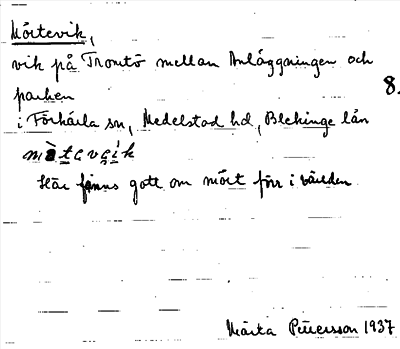 Mörtevik,
vik på Tromtö mellan Anläggningen och
parken
8.
i Förkärla sn, Medelstad hd, Blekinge län
Här finns gott om mört förr i världen
Märta Petersson 1937